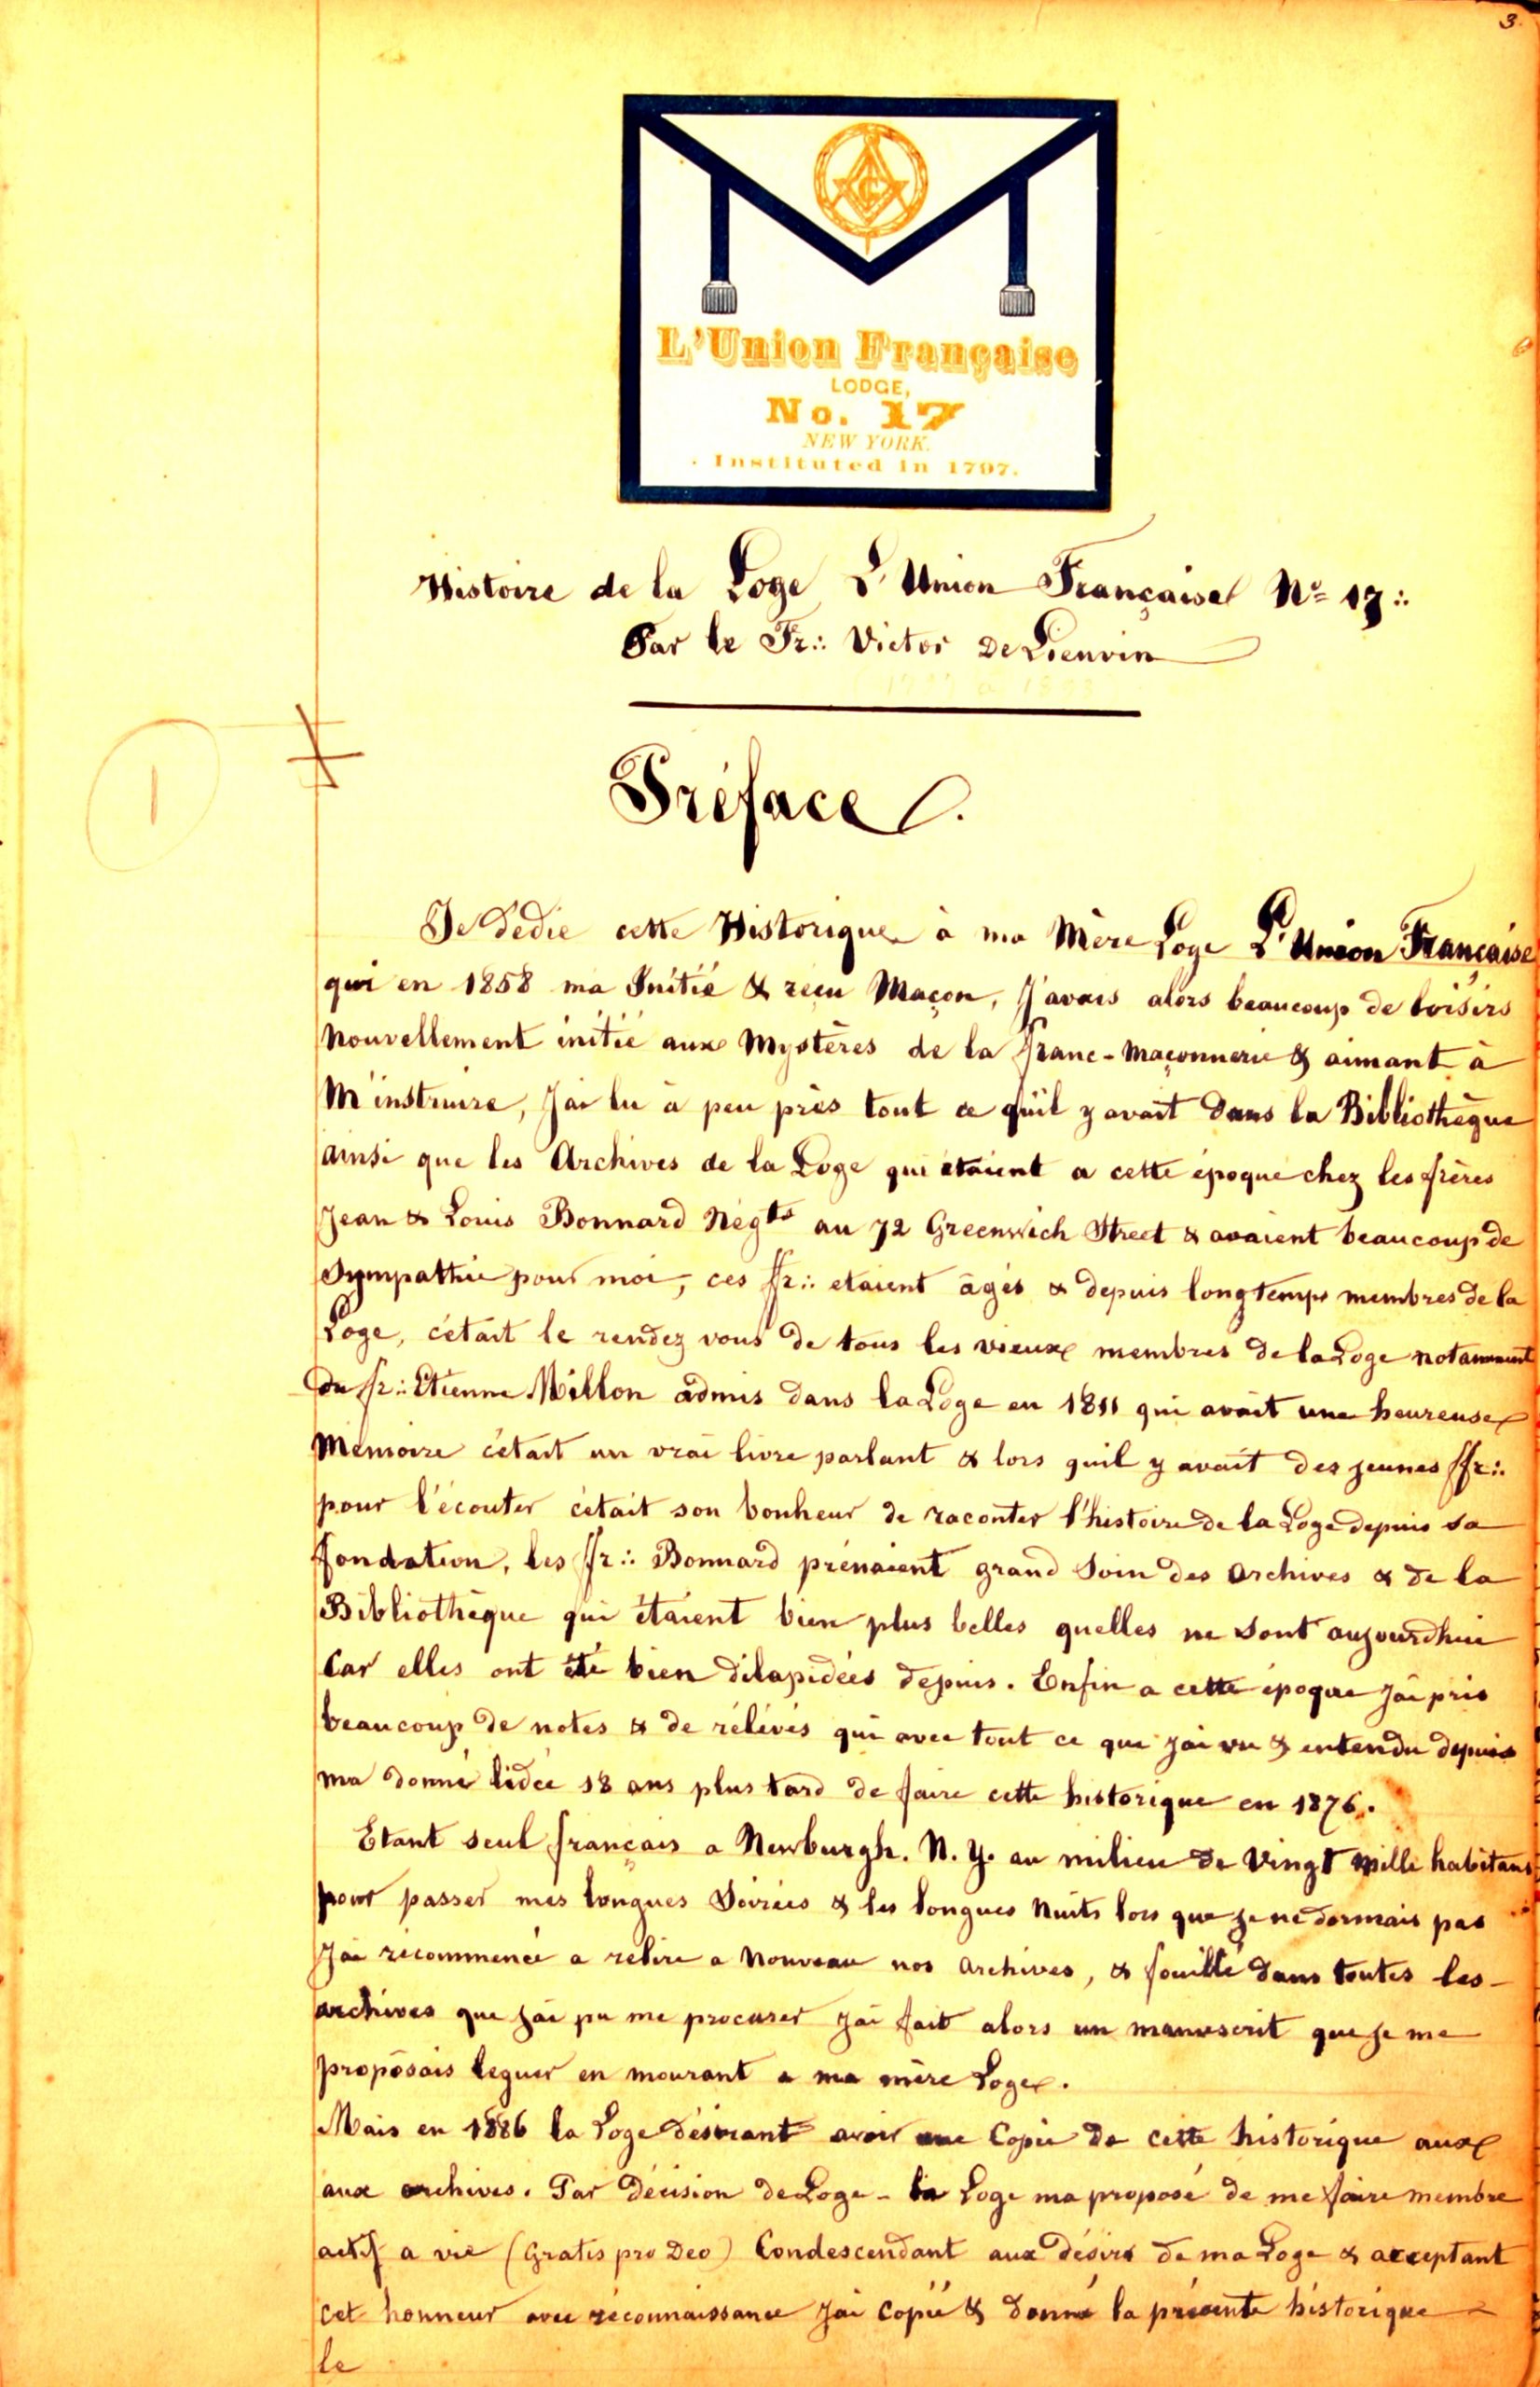 3.
G
L'Union Française
LODGE,
No. 17
NEW YORK.
Instituted in 1797.
Histoire de la Loge L'Union Française Nº 17∴
Par le Fr∴ Victor De Lienvin
1
Préface.
Je Dédie cette Historique à ma Mère Loge L'Union Française
qui en 1858 ma Initié & reçu Maçon, J'avais alors beaucoup de loisirs
Nouvellement initié aux Mystères de la franc-Maçonnerie & aimant à
M'instruire, J'ai lu à peu près tout ce qu'il y avait dans la Bibliothèque
ainsi que les Archives de la Loge qui étaient a cette époque chez les frères
Jean & Louis Bonnard Négts au 72 Greenwich Street & avaient beaucoup de
Sympathie pour moi, ces ffr∴ etaient âgés & depuis longtemps membres de la
Loge, c'était le rendez vous de tous les vieux membres de la Loge notamment
du fr∴ Etienne Millon admis dans la Loge en 1811 qui avait une heureuse
Mémoire c'était un vrai livre parlant & lors quil y avait des jeunes ffr∴
pour l'écouter c'était son bonheur de raconter l'histoire de la Loge depuis sa
fondation, les ffr∴ Bonnard prénaient grand Soin des archives & de la
Bibliothèque qui étaient bien plus belles quelles ne sont aujourdhui
Car elles ont été bien dilapidées depuis. Enfin a cette époque jai pris
beaucoup de notes & de rélévés qui avec tout ce que jai vu & entendu depuis
ma donné lidée 18 ans plus tard de faire cette historique en 1876.
Etant seul français a Newburgh. N. Y. au milieu de Vingt mille habitans
pour passer mes longues Soirées & les longues Nuits lors que je ne dormais pas
J'ai récommencé a relire a Nouveau nos archives, & fouillé dans toutes les
archives que jai pu me procurer jai fait alors un manuscrit que je me
propôsais leguer en mourant a ma mère Loge.
Mais en 1886 la Loge désirant avoir une Copie de cette historique aux
aux archives. Par Décision de Loge - la Loge ma proposé de me faire membre
actif a vie (Gratis pro Deo) Condescendant aux désirs de ma Loge & acceptant
cet honneur avec réconnaissance Jai Copié & donné la présente historique
le